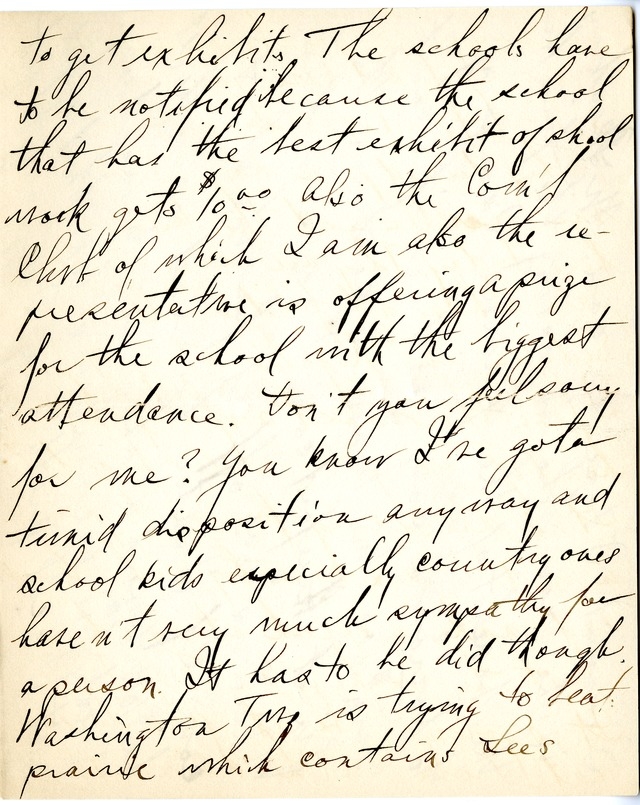 to get exhibits. The schools have
to be notified because the school
that has the best exhibit of shool
work gets $10.00 also the Com'l
Club of which I am also the re-
presentative is offering a prize
for the school with the biggest
attendance. Don't you feel sorry
for me? You know I've gota
timid disposition anyway and
school kids especially country ones
haven't very much sympathy for
a person. It has to be did though.
Washington Twp is trying to beat
prairie which contains Lees